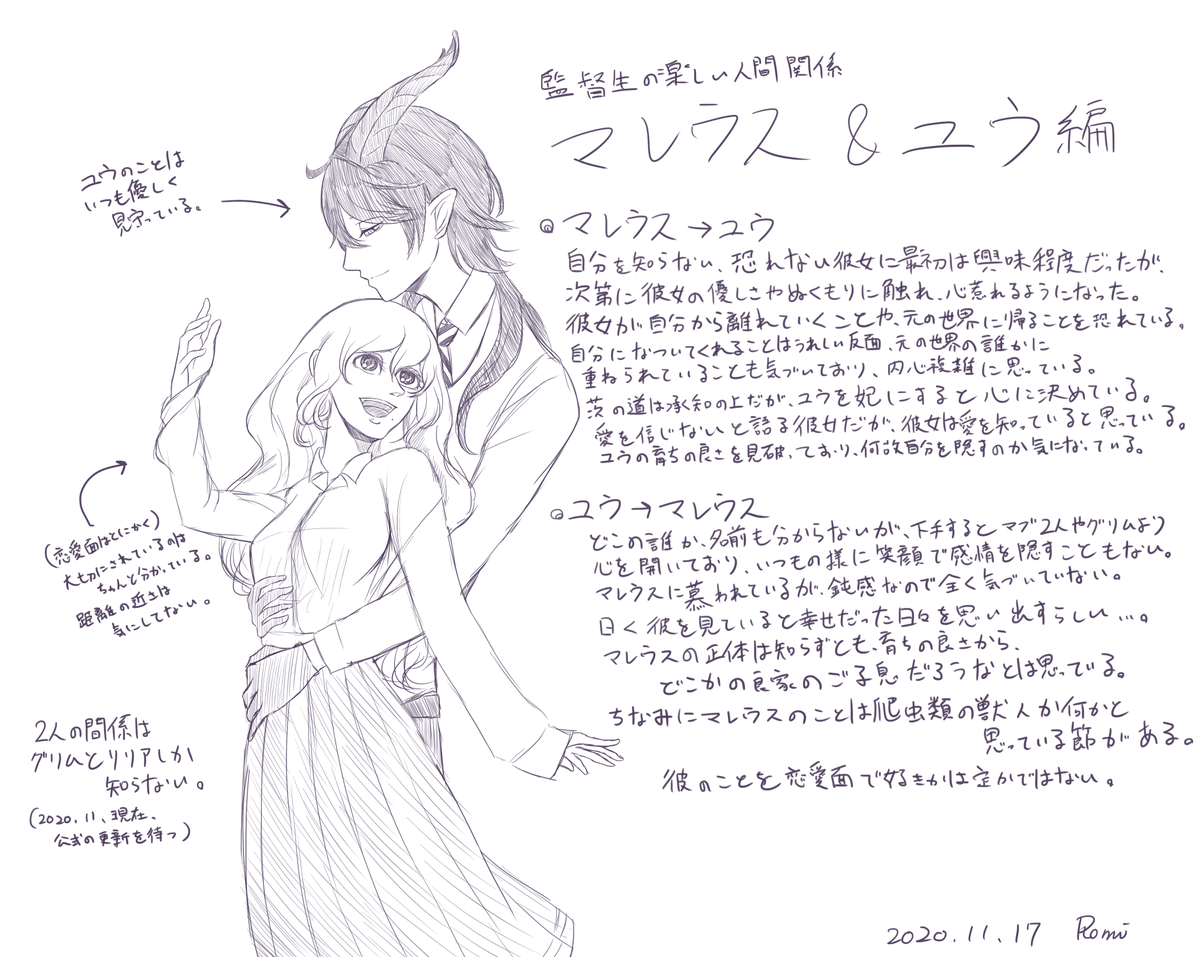 監督生の楽しい人間関係
マレウス & ユウ編
ユウのことは
いつも優しく
見守っている。
◎ マレウス → ユウ
自分を知らない、恐れない彼女に最初は興味程度だったが、
次第に彼女の優しさやぬくもりに触れ、心惹れるようになった。
彼女が自分から離れていくことや、元の世界に帰ることを恐れている。
自分になついてくれることはうれしい反面、元の世界の誰かに
重ねられていることも気づいており、内心複雑に思っている。
茨の道は承知の上だが、ユウを妃にすると心に決めている。
愛を信じないと語る彼女だが、彼女は愛を知っていると思っている。
ユウの育ちの良さを見破っており、何故自分を隠すのか気になっている。
◎ ユウ → マレウス
どこの誰か、名前も分からないが、下手するとマブ2人やグリムより
心を開いており、いつもの様に笑顔で感情を隠すこともない。
マレウスに慕われているが、鈍感なので全く気づいていない。
曰く彼を見ていると幸せだった日々を思い出すらしい…。
マレウスの正体は知らずとも、育ちの良さから、
どこかの良家のご子息だろうなとは思っている。
ちなみにマレウスのことは爬虫類の獣人か何かと
思っている節がある。
彼のことを恋愛面で好きかは定かではない。
(恋愛面はとにかく)
大切にされているのは
ちゃんと分かっている。
距離の近さは
気にしてない。
2人の間係は
グリムとリリアしか
知らない。
(2020.11、現在、
公式の更新を待つ)
2020.11.17 Romi